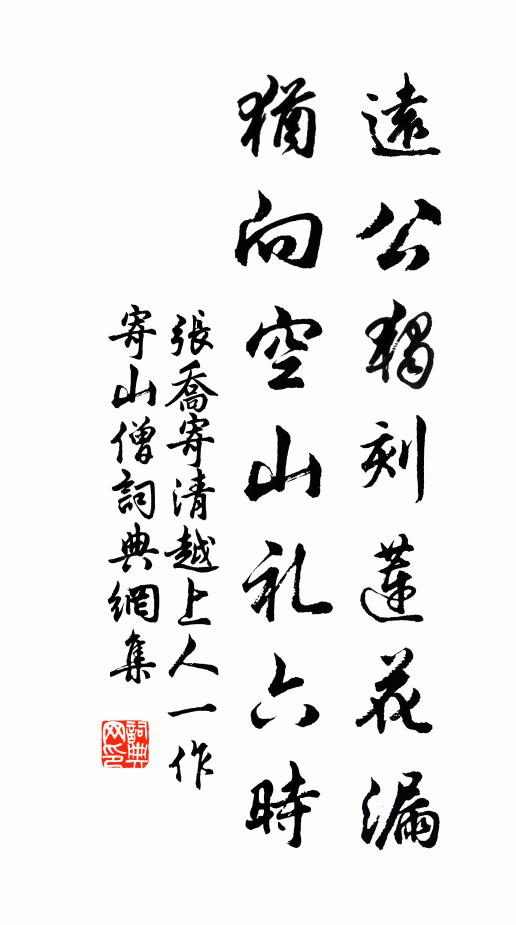 遠公獨刻蓮花漏
猶向空山礼六時
張喬寄清越上人一作
寄山僧詞典網集
詞典
网印